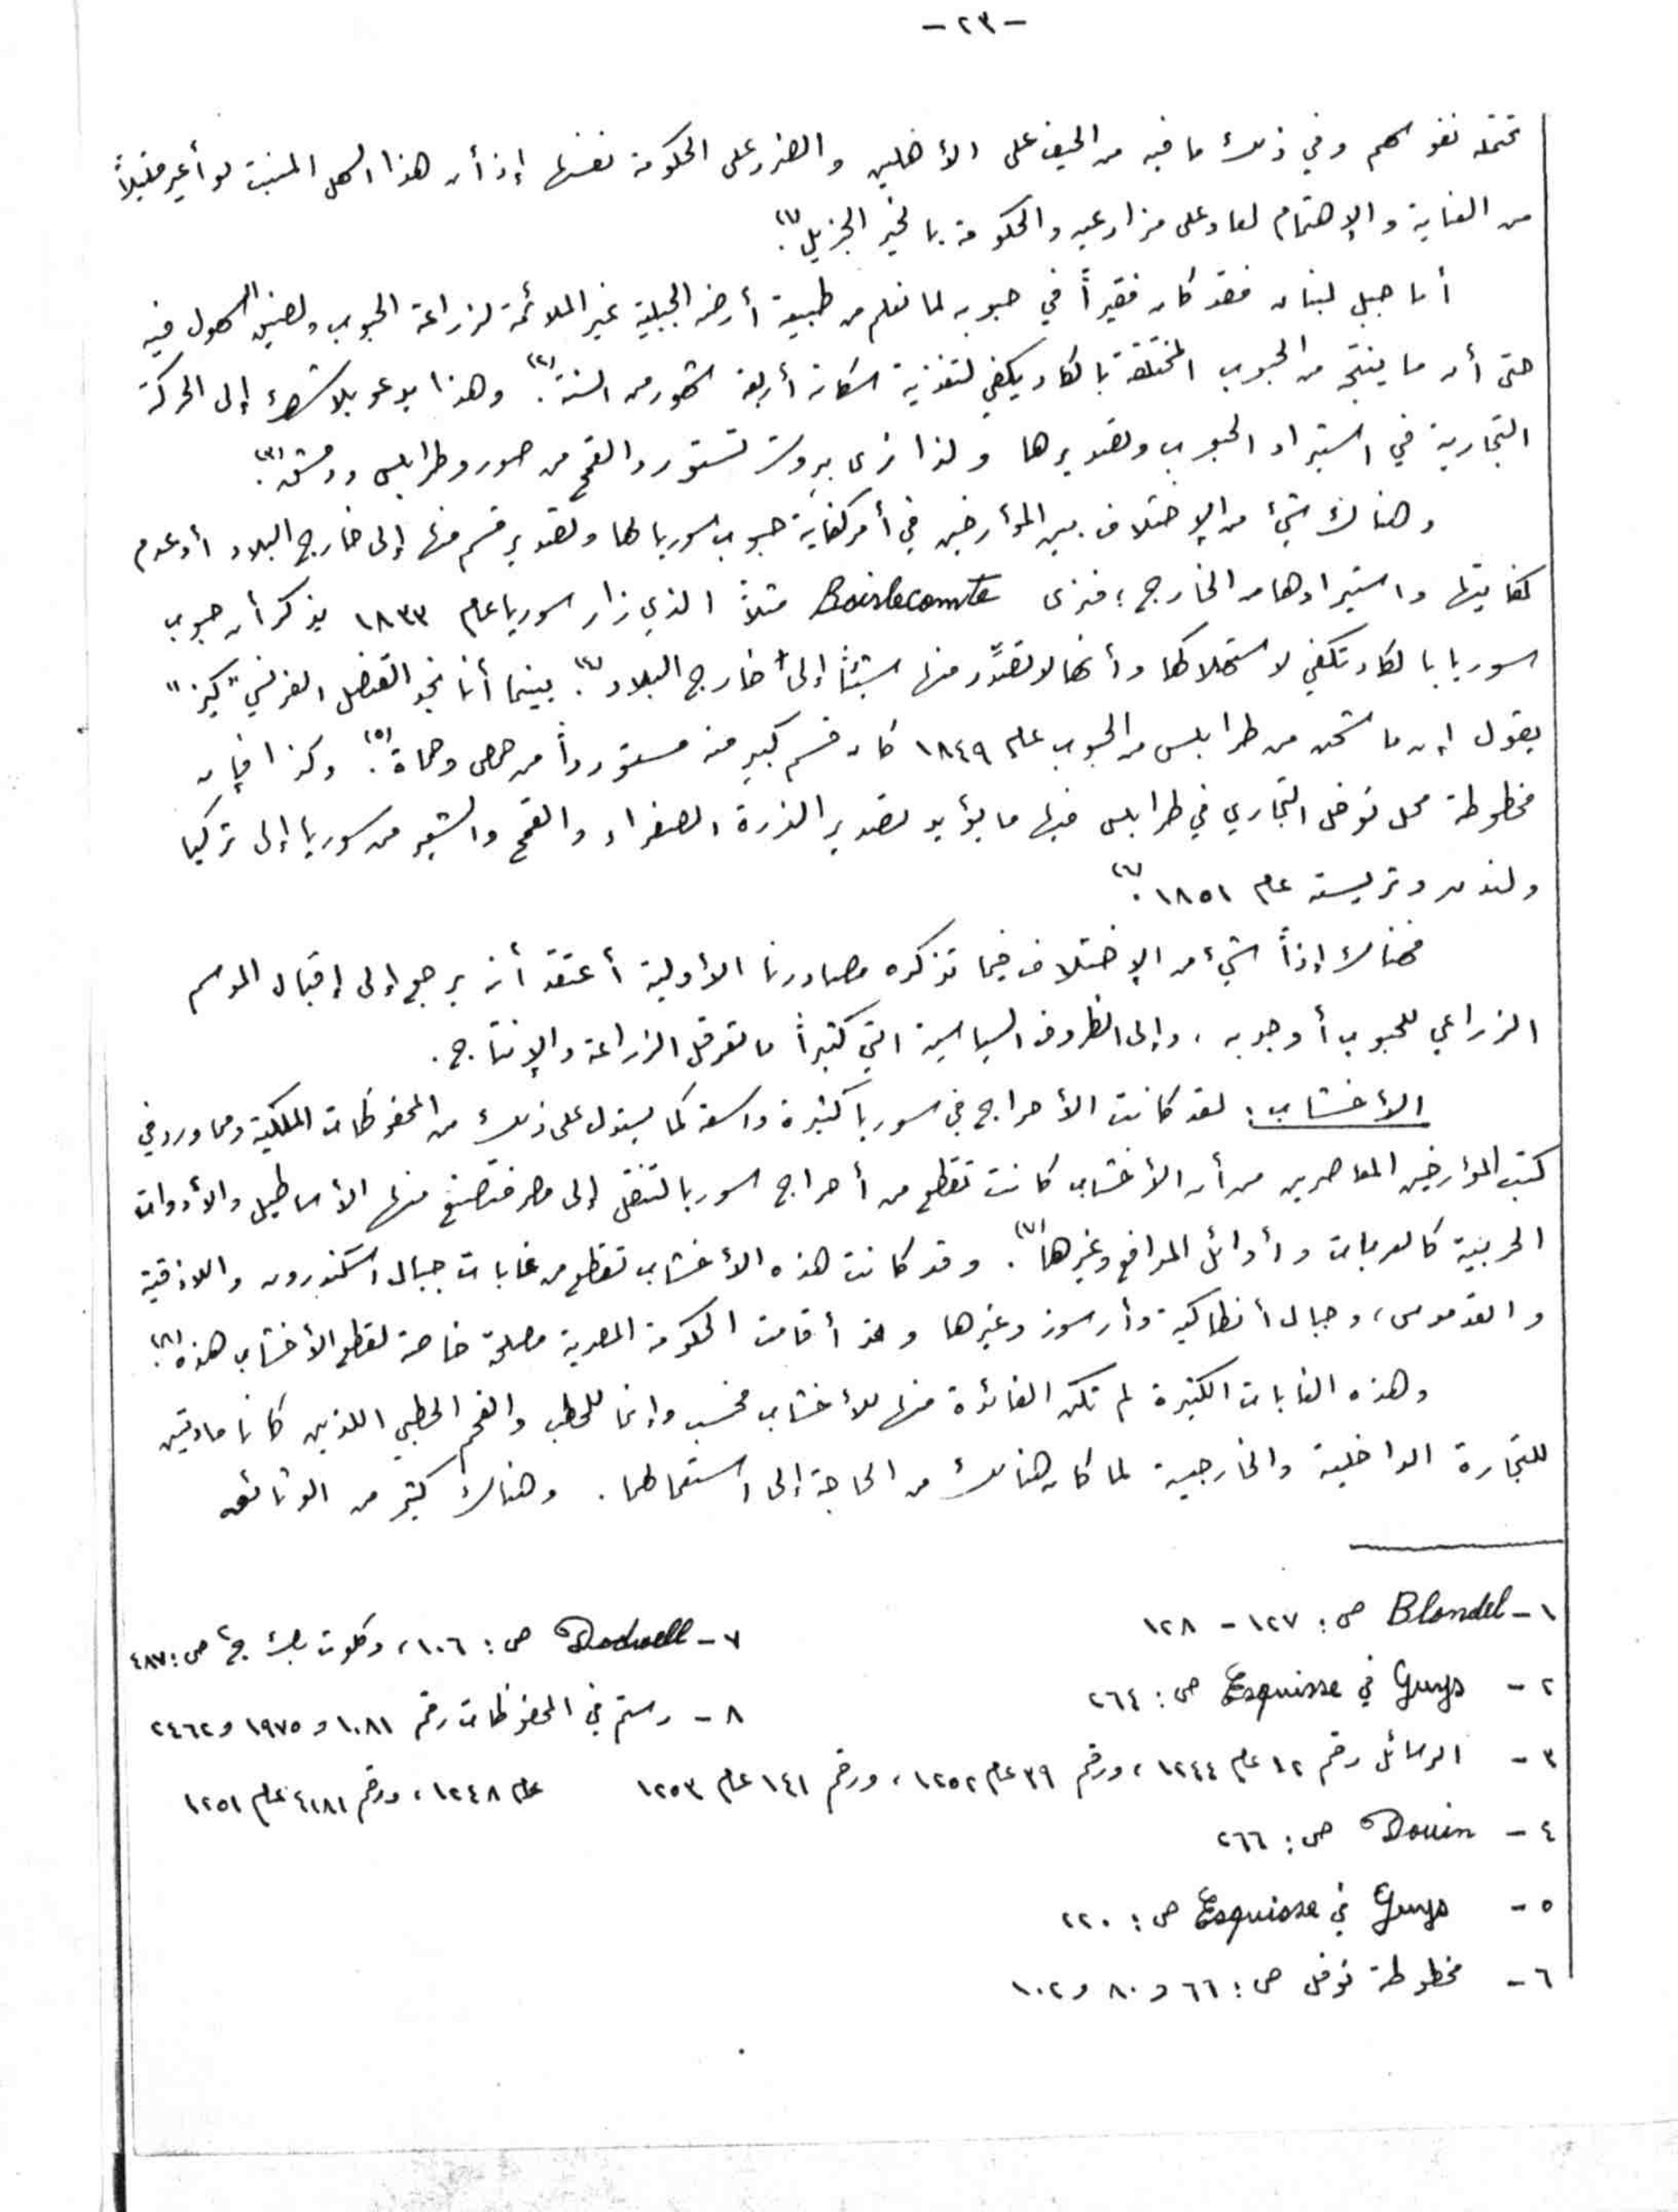 -٢٣-
تحتمله نفوسهم وفي ذلك ما فيه من الحيف على الأهلين والضرر على الحكومة نفسها إذ أن هذا السهل المنبت لو أعير قليلاً
من العناية والإهتمام لعاد على مزارعيه والحكومة بالخير الجزيل(١).
أما جبل لبنان فقد كان فقيراً في حبوبه لما نعلم من طبيعة أرضه الجبلية غير الملائمة لزراعة الحبوب ولضيق السهول فيه
حتى أن ما ينتجه من الحبوب المختلفة بالكاد يكفي لتغذية سكانه أربعة شهور من السنة(٢). وهذا يدعو بلا شك إلى الحركة
التجارية في استيراد الحبوب وتصديرها ولذا نرى بيروت تستورد القمح من صور وطرابلس ودمشق(٣).
وهناك شيء من الإختلاف بين المؤرخين في أمر كفاية حبوب سوريا لها وتصدير قسم منها إلى خارج البلاد أو عدم
كفايتها واستيرادها من الخارج؛ فنرى Boislecomte مثلاً الذي زار سوريا عام ١٨٣٣ يذكر أن حبوب
سوريا بالكاد تكفي لاستهلاكها وأنها لا تصدّر منها شيئاً إلى خارج البلاد(٤). بينما أننا نجد القنصل الفرنسي "كيز"
يقول إن ما شحن من طرابلس من الحبوب عام ١٨٤٩ كان قسم كبير منه مستورداً من حمص وحماة(٥). وكذا فإن
مخطوطة محل نوفل التجاري في طرابلس فيها ما يؤيد تصدير الذرة الصفراء والقمح والشعير من سوريا إلى تركيا
ولندن وتريسته عام ١٨٥١(٦).
فهناك إذاً شيء من الإختلاف فيما تذكره مصادرنا الأولية أعتقد أنه يرجع إلى إقبال الموسم
الزراعي للحبوب أو جدبه، وإلى الظروف السياسية التي كثيراً ما تعرقل الزراعة والإنتاج.
الأخشاب: لقد كانت الأحراج في سوريا كثيرة واسعة كما يستدل على ذلك من المحفوظات الملكية ومما ورد في
كتب المؤرخين المعاصرين من أن الأخشاب كانت تقطع من أحراج سوريا لتنقل إلى مصر فتصنع منها الأساطيل والأدوات
الحربية كالعربات وأوائل المدافع وغيرها(٧). وقد كانت هذه الأخشاب تقطع من غابات جبال اسكندرون واللاذقية
والقدموس، وجبال أنطاكية وأرسوز وغيرها وقد أقامت الحكومة المصرية مصلحة خاصة لقطع الأخشاب هذه(٨).
وهذه الغابات الكثيرة لم تكن الفائدة منها للأخشاب فحسب وإنما للحطب والفحم الحطبي اللذين كانا مادتين
للتجارة الداخلية والخارجية لما كان هناك من الحاجة إلى استعمالهما. وهناك كثير من الوثائق
١- Blondel ص: ١٢٧ - ١٢٨
٢- Guys في Esquisse ص: ٢٦٤
٣- الرسائل رقم ١٢ عام ١٢٤٤، ورقم ٣٩ عام ١٢٥٢، ورقم ١٤١ عام ١٢٥٣
٤- Douin ص: ٢٦٦
٥- Guys في Esquisse ص: ٢٢٠
٦- مخطوطة نوفل ص: ٦٦ و٨٠ و١٠٢
٧- Dodwell ص: ١٠٦، وكلوت بك ج٢ ص: ٤٨٧
٨- رستم في المحفوظات رقم ١٠٨١ و١٩٧٥ و٢٤٦٢
عام ١٢٤٨، ورقم ٤١٨١ عام ١٢٥١